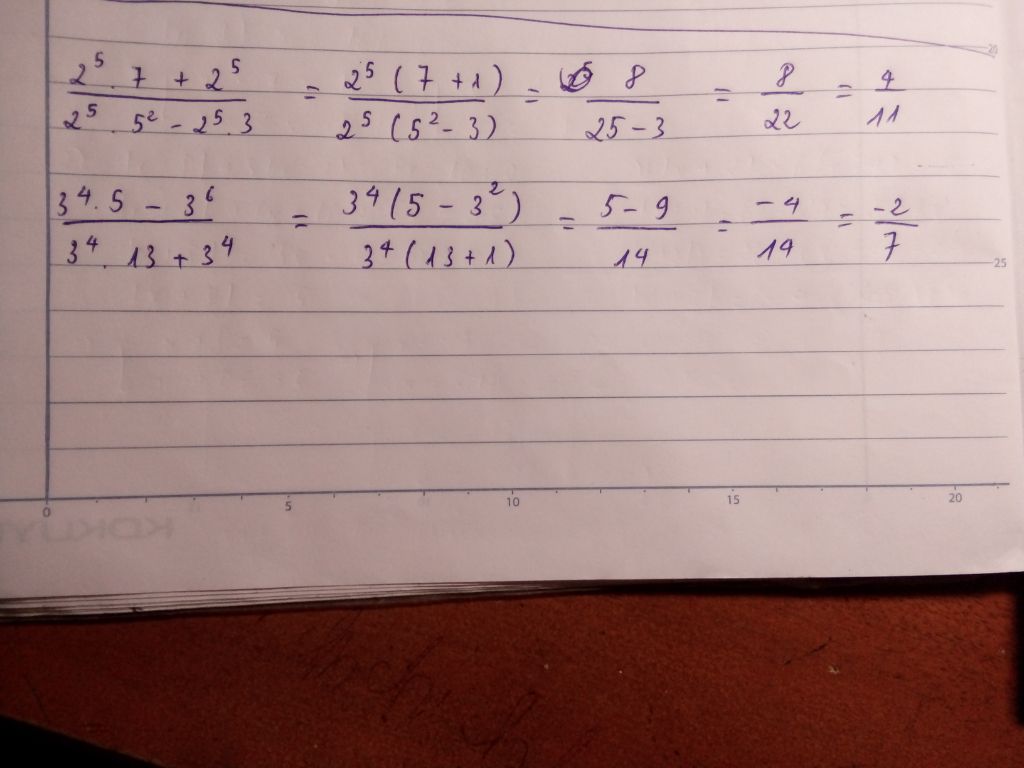 2⁵ . 7 + 2⁵ / 2⁵ . 5² - 2⁵ . 3 = 2⁵ ( 7 + 1 ) / 2⁵ ( 5² - 3 ) = 8 / 25 - 3 = 8 / 22 = 4 / 11
3⁴ . 5 - 3⁶ / 3⁴ . 13 + 3⁴ = 3⁴ ( 5 - 3² ) / 3⁴ ( 13 + 1 ) = 5 - 9 / 14 = -4 / 14 = -2 / 7
20
25
0 5 10 15 20